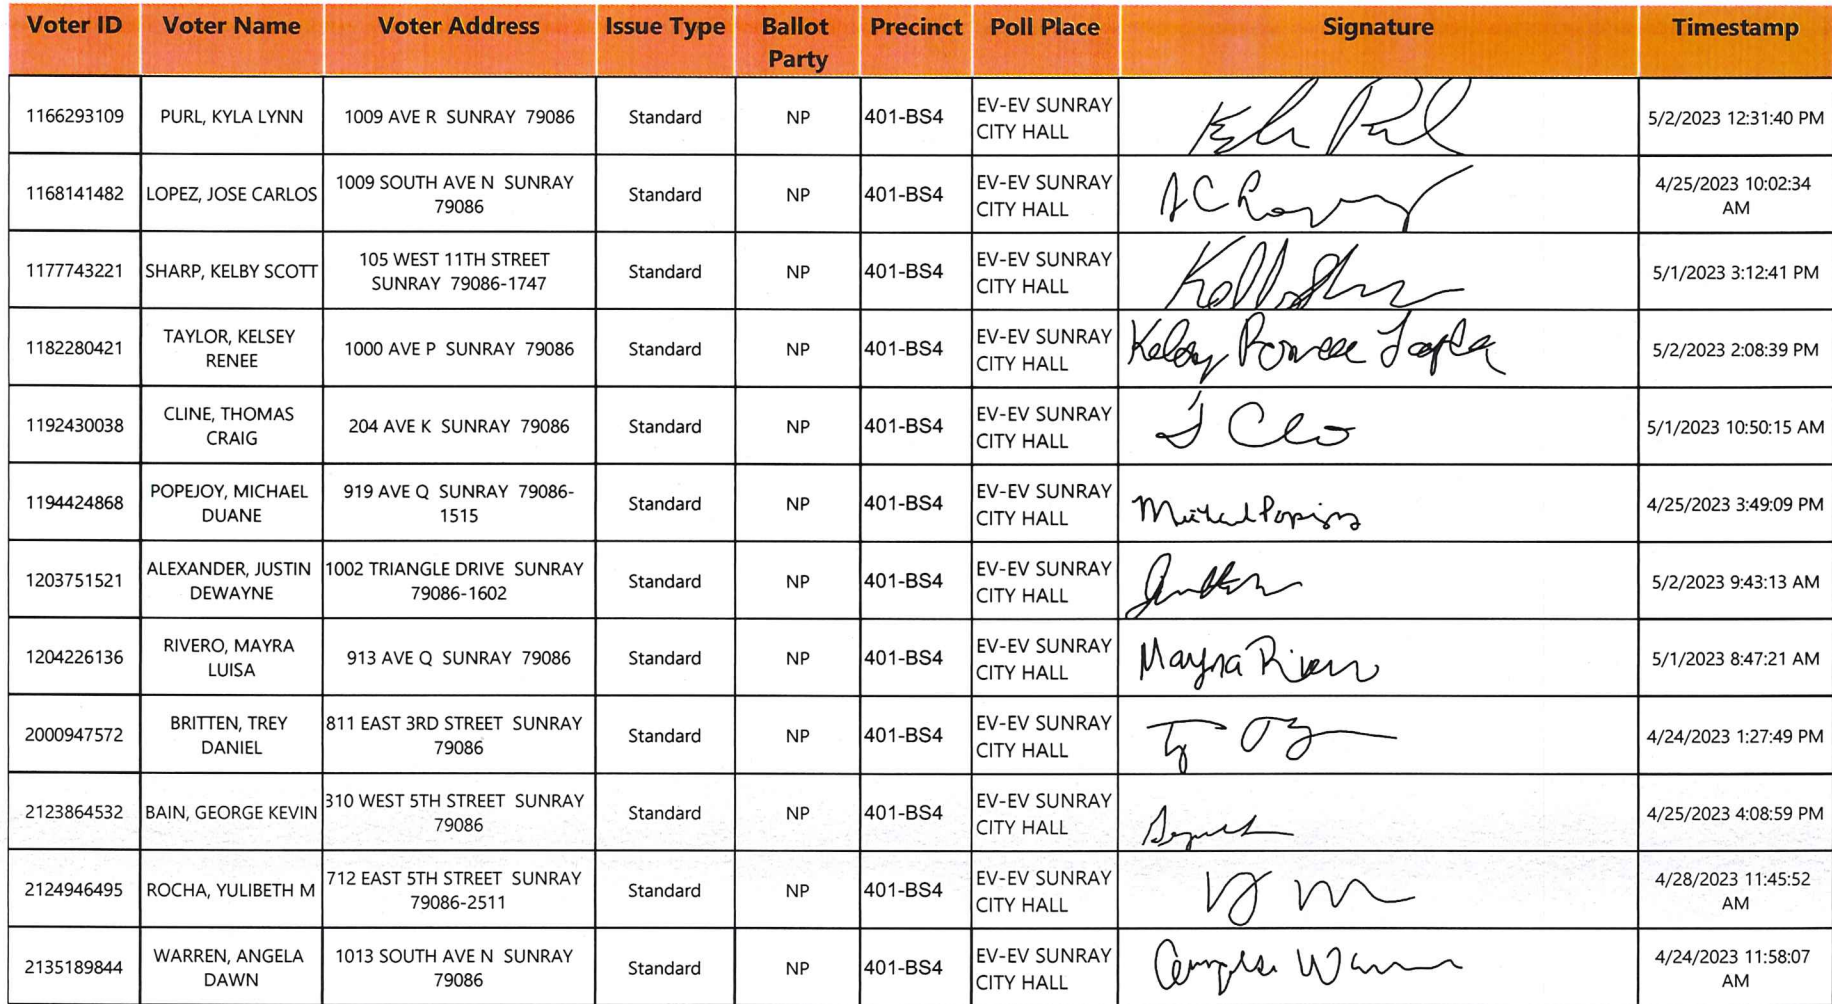 Voter ID Voter Name Voter Address Issue Type Ballot Party Precinct Poll Place Signature Timestamp
1166293109 PURL, KYLA LYNN 1009 AVE R SUNRAY 79086 Standard NP 401-BS4 EV-EV SUNRAY CITY HALL 5/2/2023 12:31:40 PM
1168141482 LOPEZ, JOSE CARLOS 1009 SOUTH AVE N SUNRAY 79086 Standard NP 401-BS4 EV-EV SUNRAY CITY HALL 4/25/2023 10:02:34 AM
1177743221 SHARP, KELBY SCOTT 105 WEST 11TH STREET SUNRAY 79086-1747 Standard NP 401-BS4 EV-EV SUNRAY CITY HALL 5/1/2023 3:12:41 PM
1182280421 TAYLOR, KELSEY RENEE 1000 AVE P SUNRAY 79086 Standard NP 401-BS4 EV-EV SUNRAY CITY HALL 5/2/2023 2:08:39 PM
1192430038 CLINE, THOMAS CRAIG 204 AVE K SUNRAY 79086 Standard NP 401-BS4 EV-EV SUNRAY CITY HALL 5/1/2023 10:50:15 AM
1194424868 POPEJOY, MICHAEL DUANE 919 AVE Q SUNRAY 79086-1515 Standard NP 401-BS4 EV-EV SUNRAY CITY HALL 4/25/2023 3:49:09 PM
1203751521 ALEXANDER, JUSTIN DEWAYNE 1002 TRIANGLE DRIVE SUNRAY 79086-1602 Standard NP 401-BS4 EV-EV SUNRAY CITY HALL 5/2/2023 9:43:13 AM
1204226136 RIVERO, MAYRA LUISA 913 AVE Q SUNRAY 79086 Standard NP 401-BS4 EV-EV SUNRAY CITY HALL Mayra 5/1/2023 8:47:21 AM
2000947572 BRITTEN, TREY DANIEL 811 EAST 3RD STREET SUNRAY 79086 Standard NP 401-BS4 EV-EV SUNRAY CITY HALL 4/24/2023 1:27:49 PM
2123864532 BAIN, GEORGE KEVIN 310 WEST 5TH STREET SUNRAY 79086 Standard NP 401-BS4 EV-EV SUNRAY CITY HALL 4/25/2023 4:08:59 PM
2124946495 ROCHA, YULIBETH M 712 EAST 5TH STREET SUNRAY 79086-2511 Standard NP 401-BS4 EV-EV SUNRAY CITY HALL 4/28/2023 11:45:52 AM
2135189844 WARREN, ANGELA DAWN 1013 SOUTH AVE N SUNRAY 79086 Standard NP 401-BS4 EV-EV SUNRAY CITY HALL 4/24/2023 11:58:07 AM